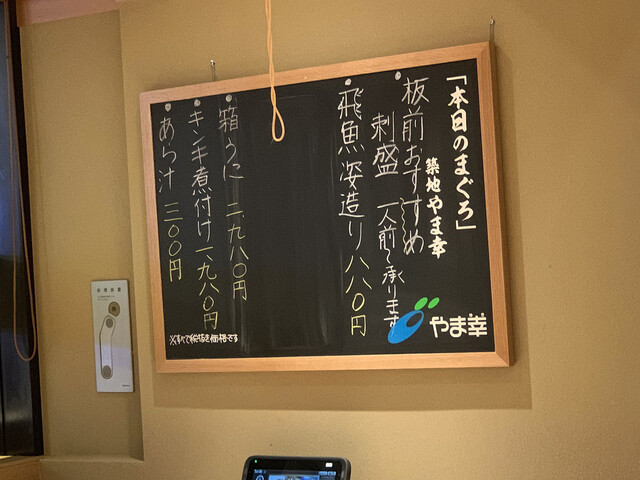 「本日のまぐろ」
築地やま幸
板前おすすめ
刺盛 一人前〜承ります
飛魚姿造り 八八〇円
箱うに 二、九八〇円
キンキ煮付け 一、九八〇円
あら汁 三〇〇円
※すべて税抜き価格です
やま幸